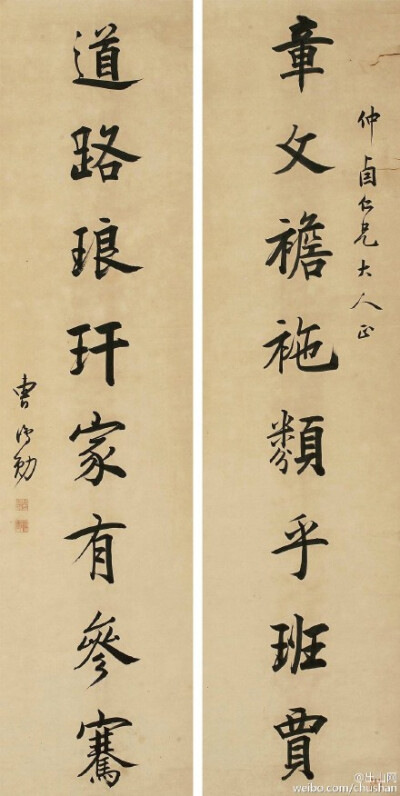 章文襜袘類乎班賈
仲卣仁兄大人正
道路琅玕家有參騫
曹鴻勛
@出山网
weibo.com/chushan